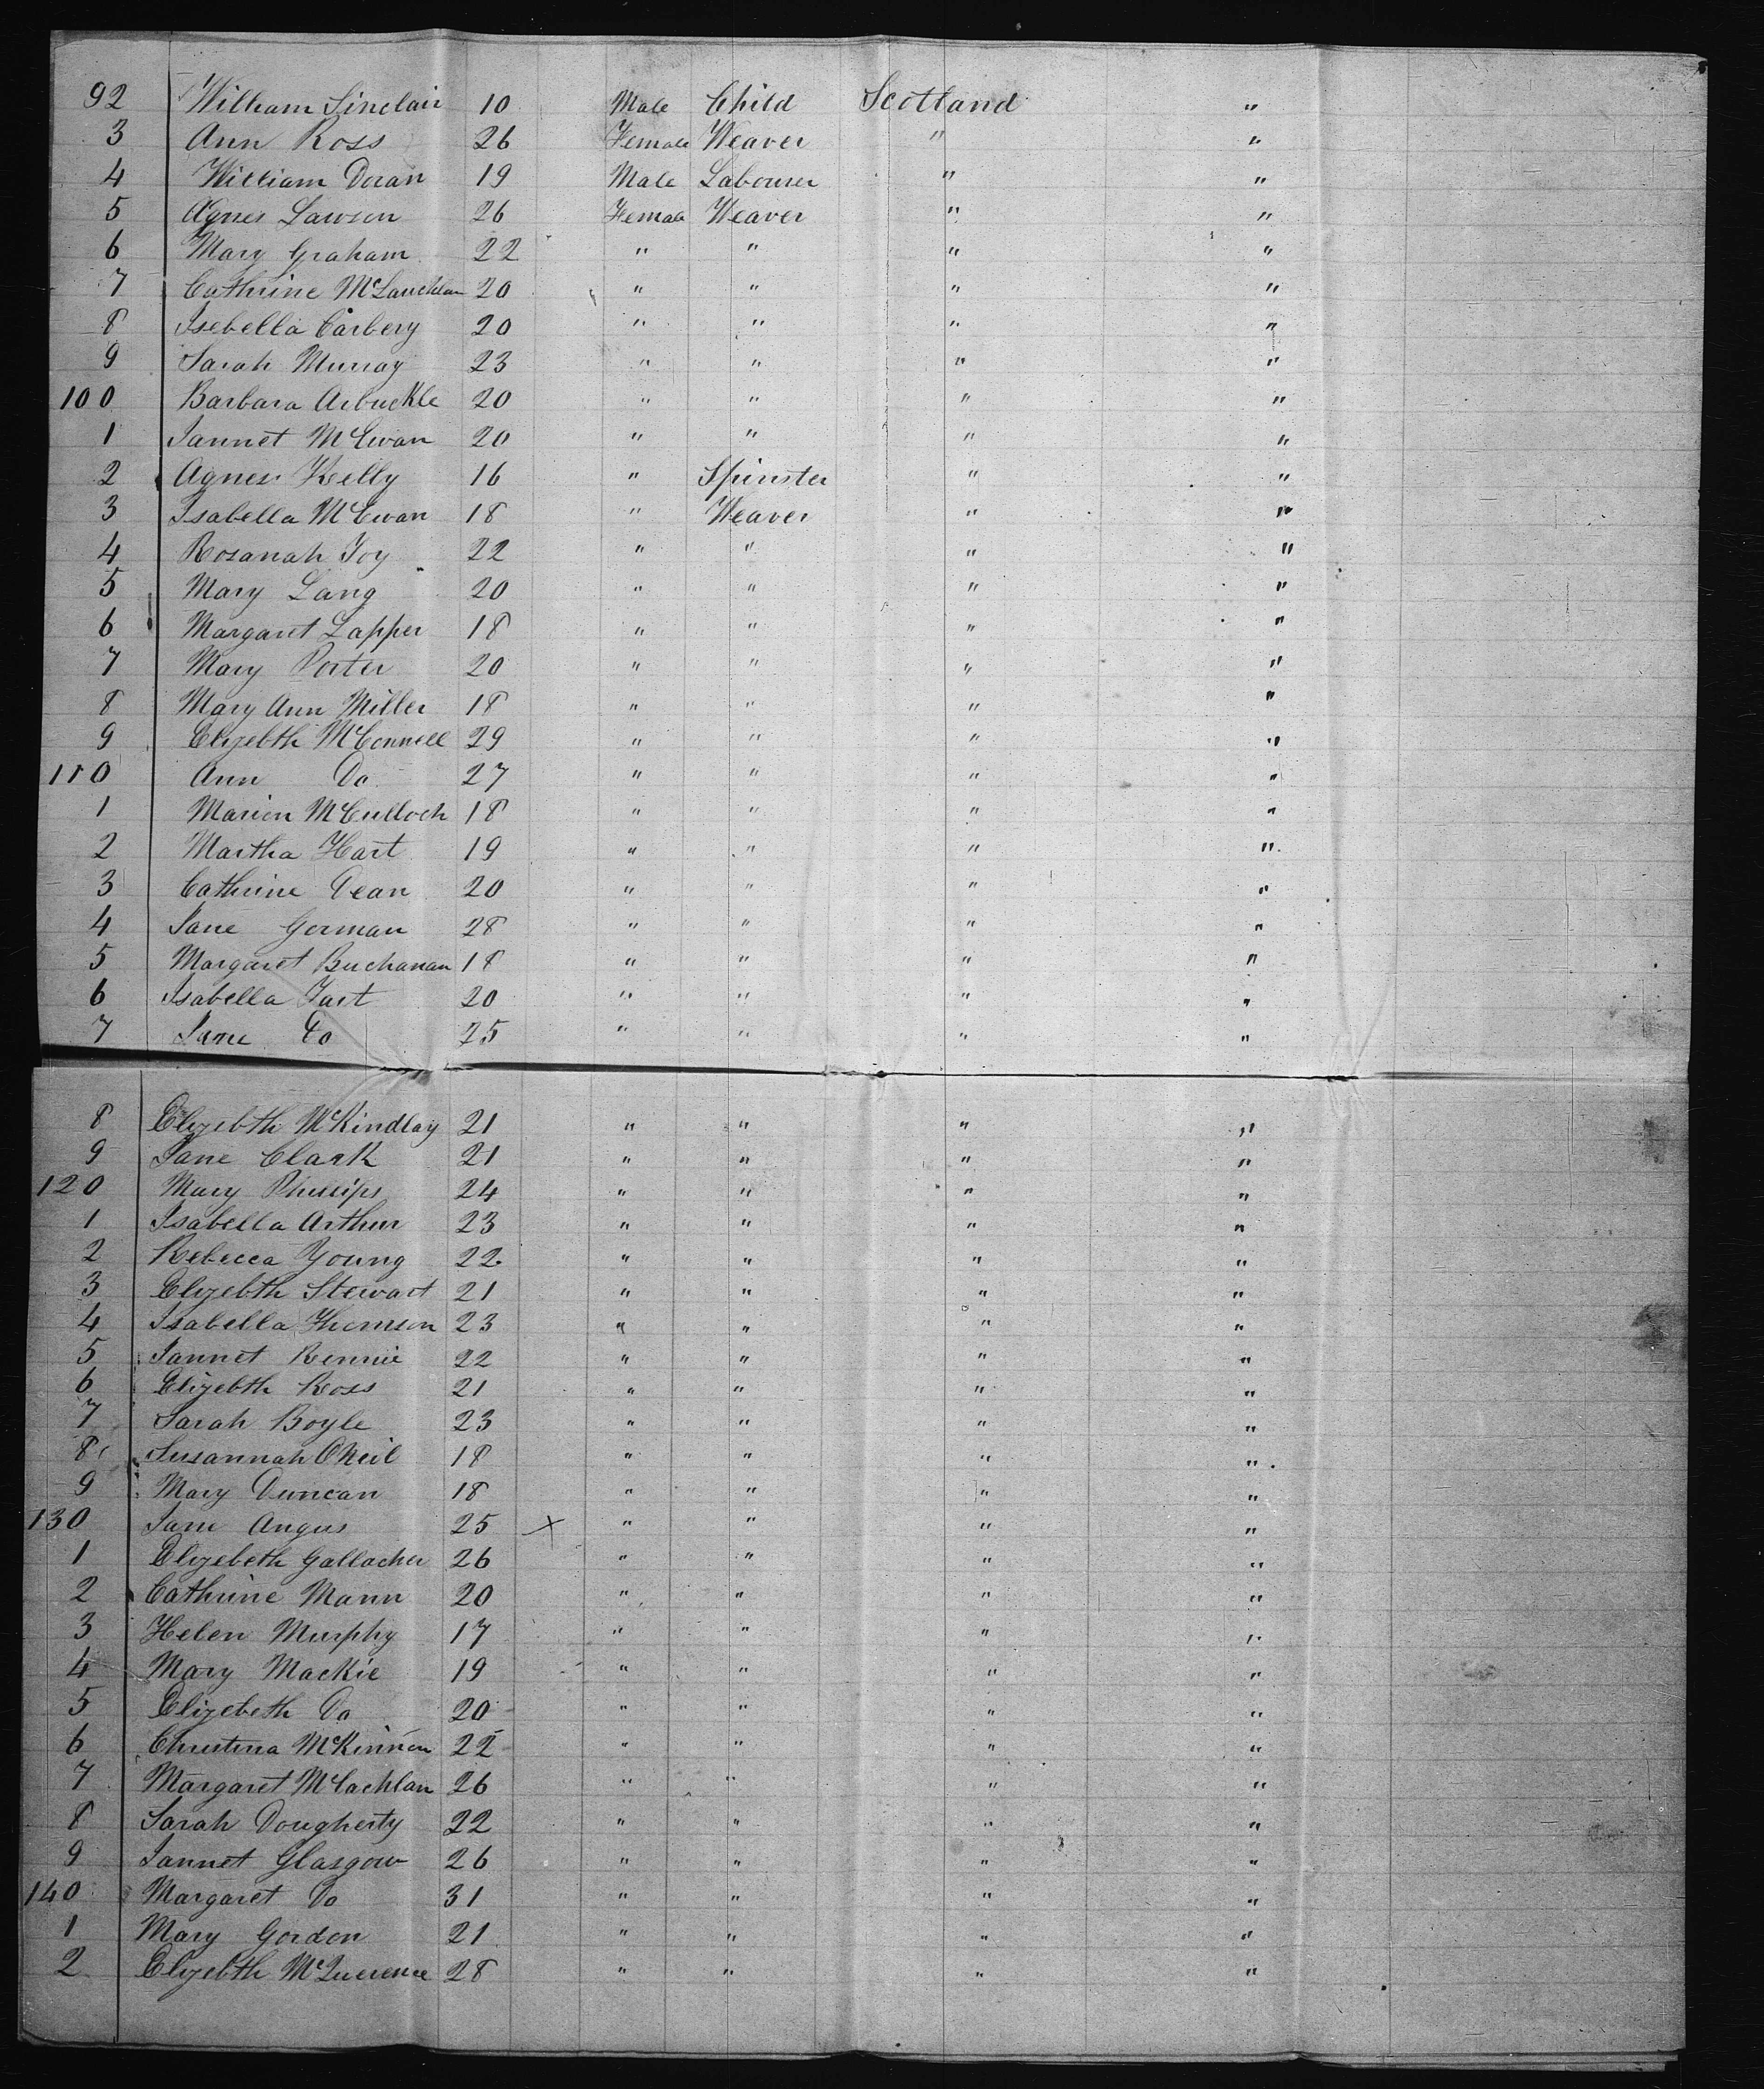 92 William Sinclair 10 Male Child Scotland "
3 Ann Ross 26 Female Weaver " "
4 William Doran 19 Male Labourer " "
5 Agnes Lawson 26 Female Weaver " "
6 Mary Graham 22 " " " "
7 Cathrine McLauchlan 20 " " " "
8 Isebella Carbery 20 " " " "
9 Sarah Murray 23 " " " "
100 Barbara Arbuckle 20 " " " "
1 Jannet McEwan 20 " " " "
2 Agnes Kelly 16 " Spinster " "
3 Isabella McEwan 18 " Weaver " "
4 Rosanah Joy 22 " " " "
5 Mary Lang 20 " " " "
6 Margaret Lapper 18 " " " "
7 Mary Porter 20 " " " "
8 Mary Ann Miller 18 " " " "
9 Elizebth McConnell 29 " " " "
110 Ann Do 27 " " " "
1 Marion McCulloch 18 " " " "
2 Martha Hart 19 " " " "
3 Cathrine Dean 20 " " " "
4 Jane Gorman 28 " " " "
5 Margaret Buchanan 18 " " " "
6 Isabella 20 " " " "
7 Jane Do 25 " " " "
8 Elizebth McKindlay 21 " " " "
9 Jane Clark 21 " " " "
120 Mary Phillips 24 " " " "
1 Isabella Arthur 23 " " " "
2 Rebecca Young 22 " " " "
3 Elizebth Stewart 21 " " " "
4 Isabella Thomson 23 " " " "
5 Jannet Rennie 22 " " " "
6 Elizebth Ross 21 " " " "
7 Sarah Boyle 23 " " " "
8 Susannah ONeil 18 " " " "
9 Mary Duncan 18 " " " "
130 Jane Angus 25 X " " " "
1 Elizebeth Gallacher 26 " " " "
2 Cathrine Mann 20 " " " "
3 Helen Murphy 17 " " " "
4 Mary Mackie 19 " " " "
5 Elizebeth Do 20 " " " "
6 Christina McKinnon 22 " " " "
7 Margaret McLachlan 26 " " " "
8 Sarah Dougherty 22 " " " "
9 Jannet Glasgow 26 " " " "
140 Margaret Do 31 " " " "
1 Mary Gordon 21 " " " "
2 Elizebth 28 " " " "